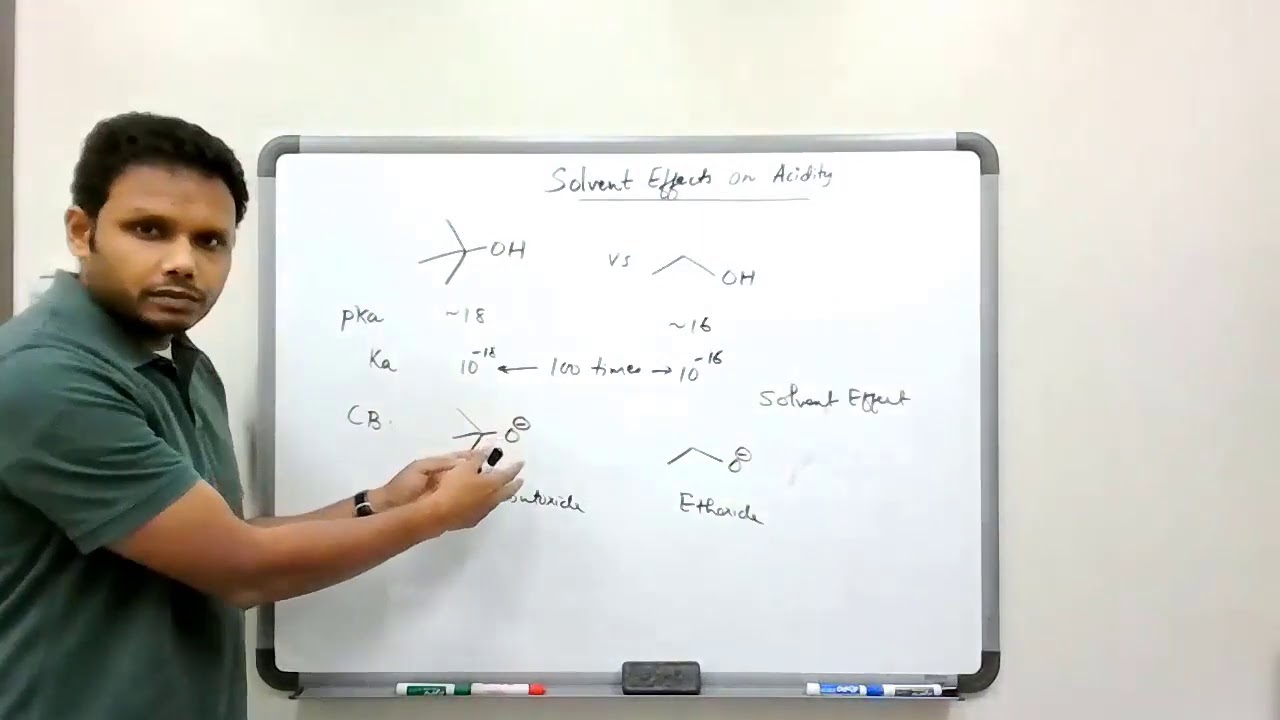 Solvent Effects on Acidity
OH vs OH
pKa ~18 ~16
Ka 10⁻¹⁸ ← 100 times → 10⁻¹⁶
Solvent Effect
CB. O⊖
O⊖
Ethoxide